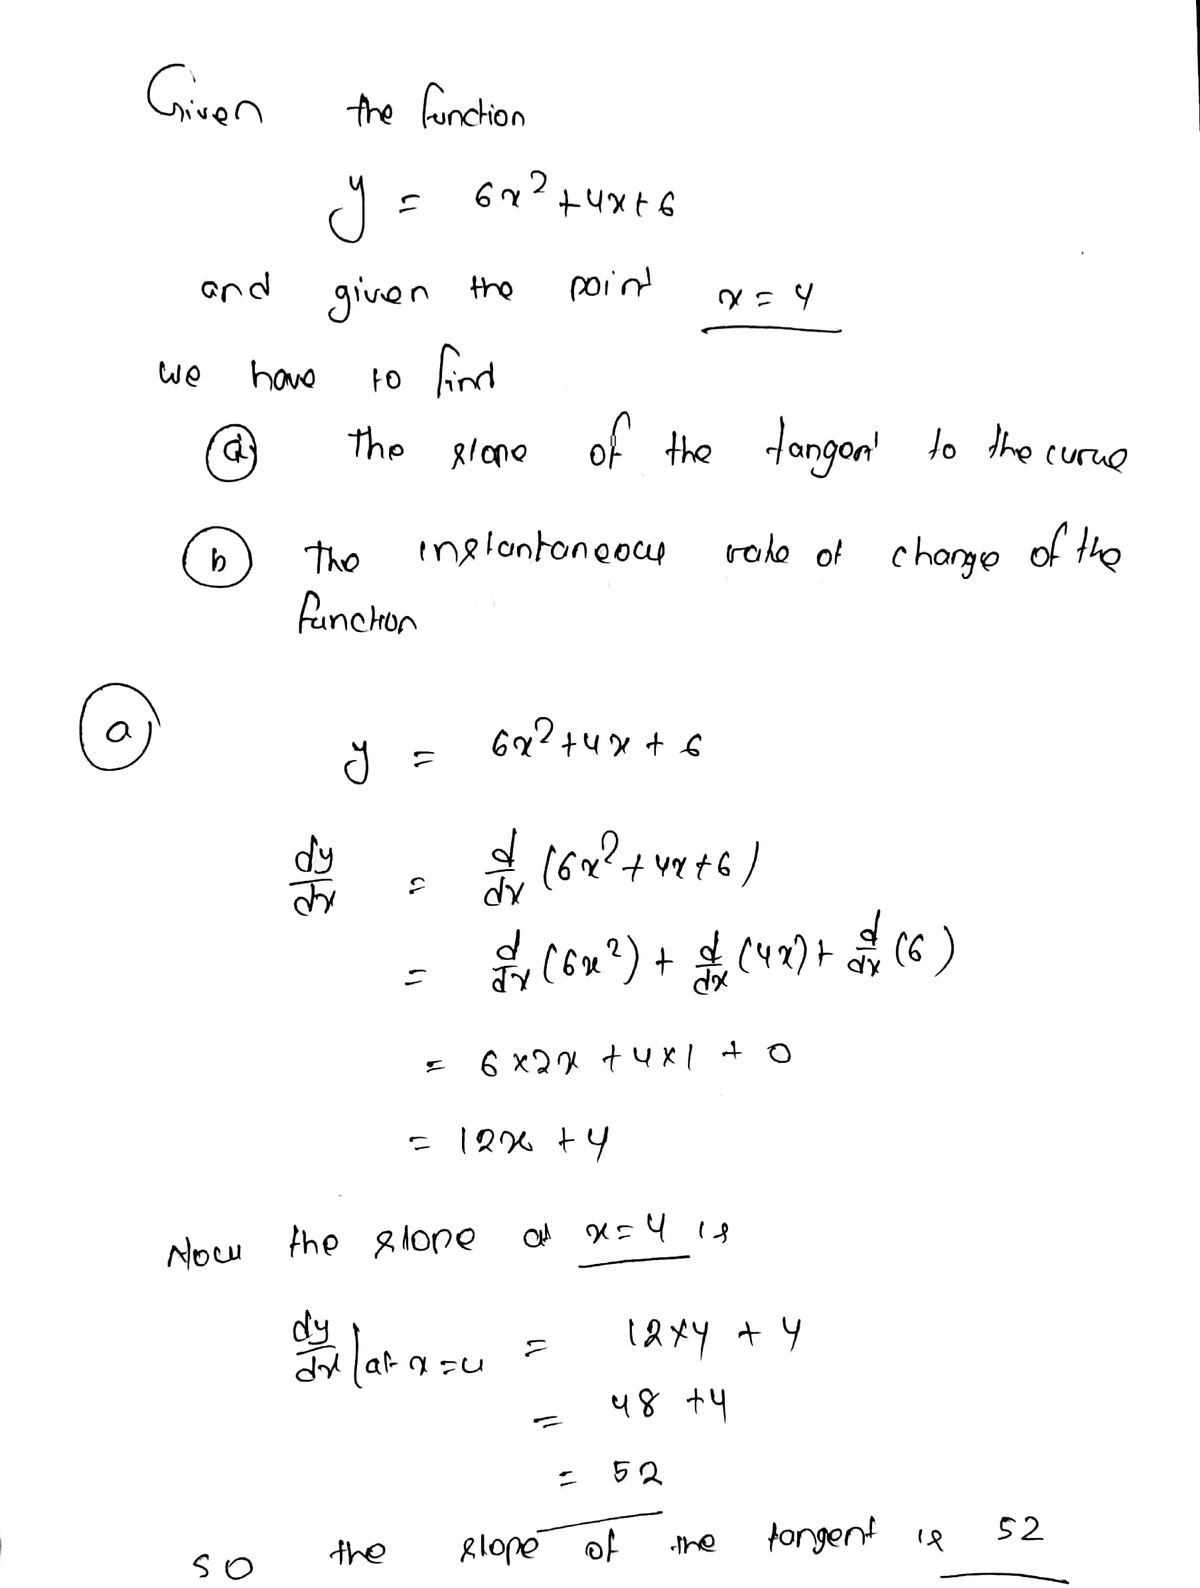 Given the function
y = 6x² + 4x + 6
and given the point x = 4
we have to find
(a) the slope of the tangent to the curve
(b) the instantaneous rate of change of the function
(a) y = 6x² + 4x + 6
dy/dx = d/dx (6x² + 4x + 6)
= d/dx (6x²) + d/dx (4x) + d/dx (6)
= 6 × 2x + 4 × 1 + 0
= 12x + 4
Now the slope at x = 4 is
dy/dx | at x = 4 = 12 × 4 + 4
= 48 + 4
= 52
so the slope of the tangent is 52